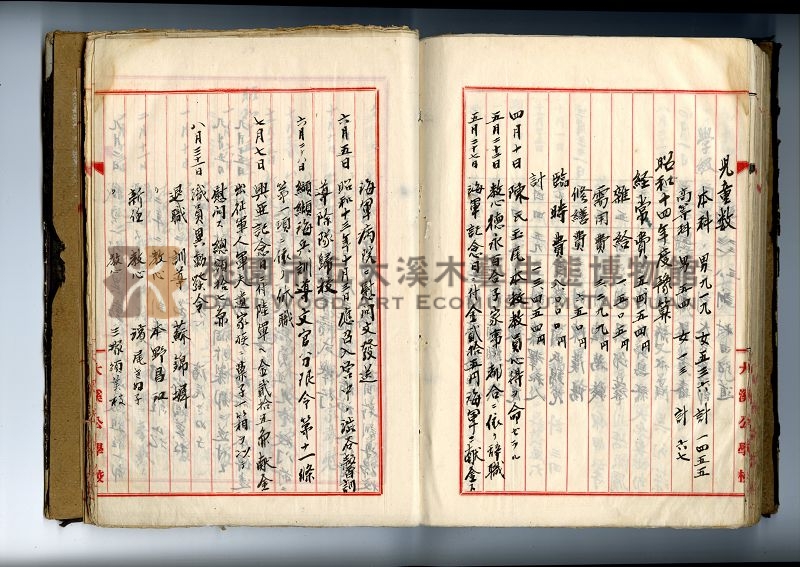 児童数
本科 男九一九 女五三六 計一四五五
高等科 男五四 女一三 計六七
昭和十四年度豫算
経常費 五四五四円
雑給 一五〇五円
需用費 三二九九円
修繕費 六五〇円
臨時費 八〇〇〇円
計 一三四五四円
四月十日 陳氏玉 本校教員心得ヲ命セラル
五月二十三日 教心徳永百合子家事ノ都合ニ依リ辞職
五月二十七日 海軍記念日ニ付金貳拾五円海軍ニ献金ス
大溪公學校
海軍病院慰問文發送
六月五日 昭和十三年十月三日應召入營中ノ澁谷 訓
導除隊歸校
六月二十八日 纐纈海平訓導文官分限令第十一條
第一項ニ依リ休職
七月七日 興亜記念日ニ付陸軍ヘ金貳拾五円献金
出征軍人軍人遺家族ニ菓子一箱ヲ以テ
慰問ス
八月三十一日 職員異動發令
退職 訓導 蘇錦
〃 教心 本野昌江
新任 教心
〃 教心
大溪公學校
桃園市立大溪木藝生態博物館
DAXI WOOD ART ECOMUSEUM